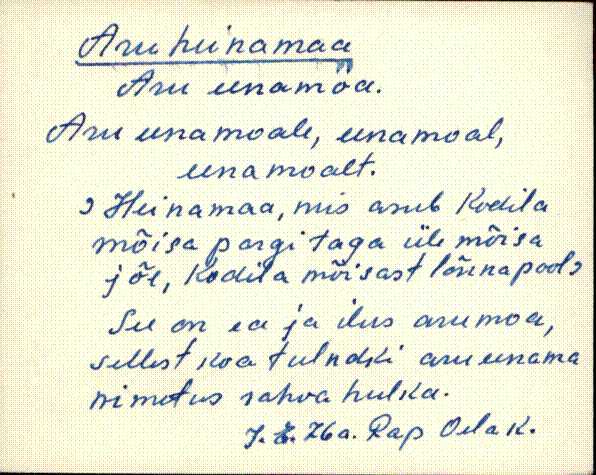 Aru heinamaa
Aru eenamõa.
Aru eenamoale, eenamoal,
eenamoalt.
? Heinamaa, mis asub Kodila
mõisa pargi taga üle mõisa
jõe, Kodila mõisast lõunapool?
See on ea ja ilus arumoa,
sellest koa tulndki aru eenama
nimetus rahva hulka.
76a. Rap Oela k.